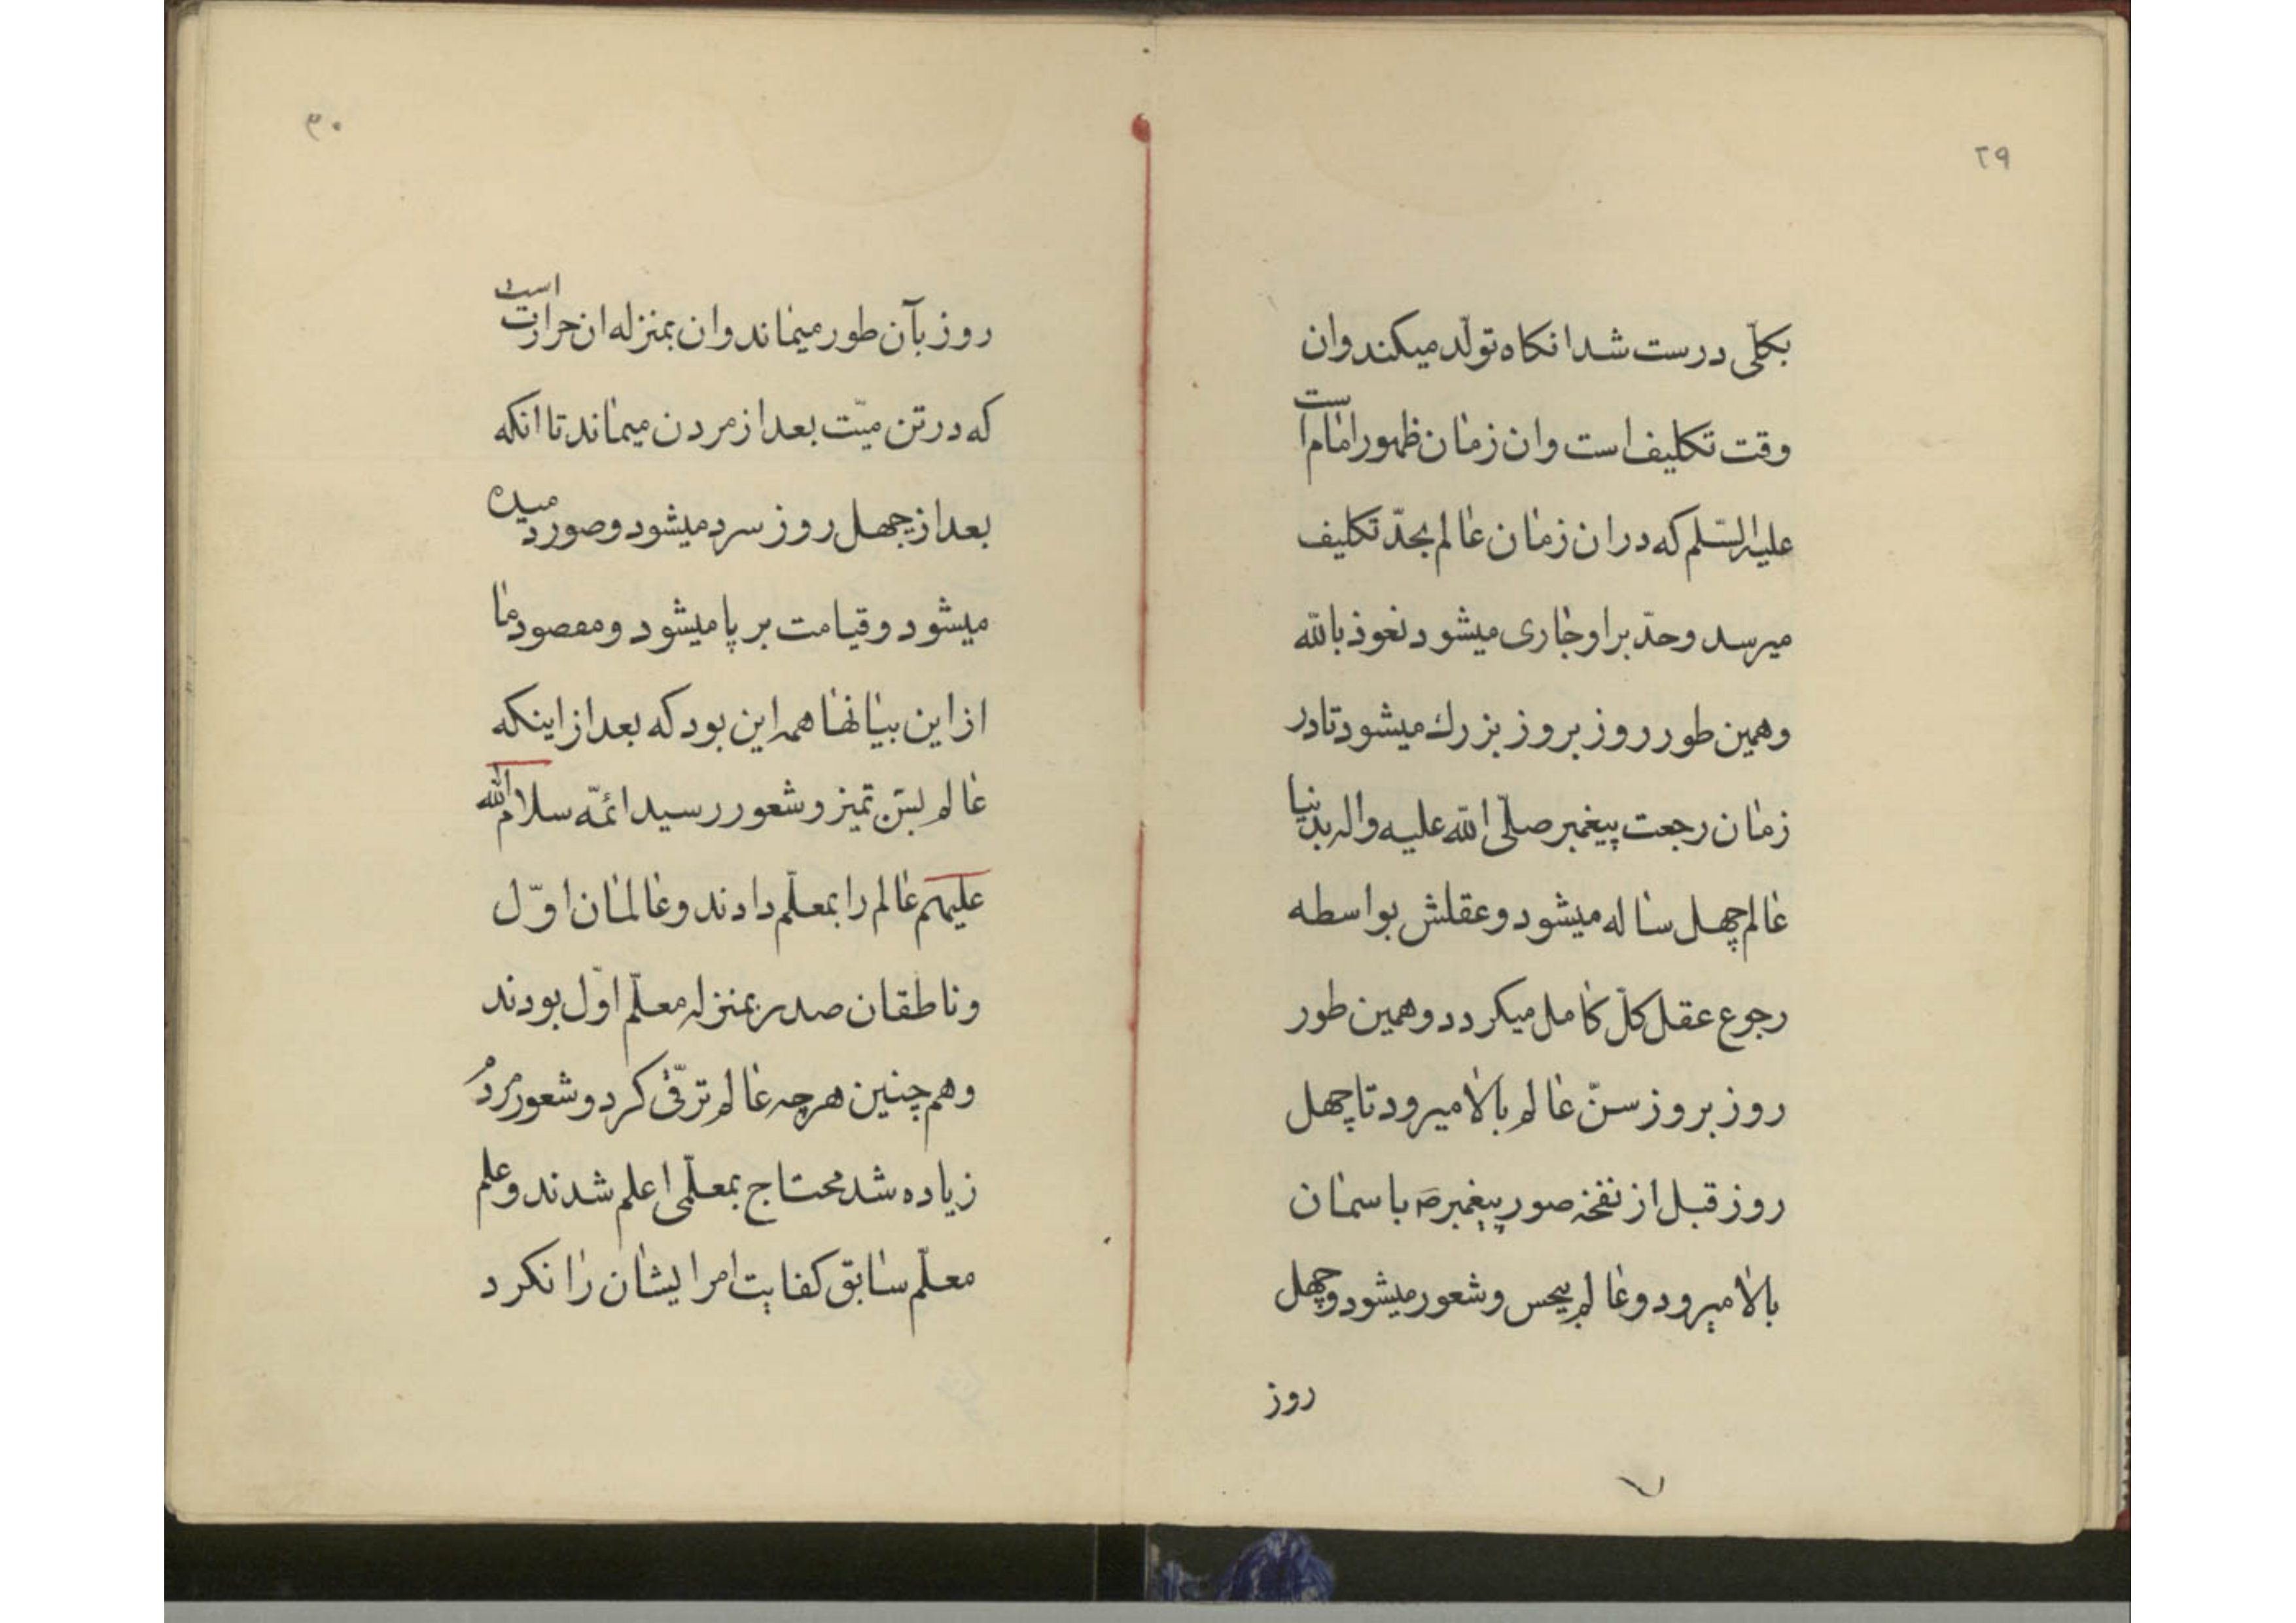 ۲۹
بکلّی درست شد انکاه تولّد میکند وان
وقت تکلیف است وان زمان ظهور امام است
علیه السّلم که در ان زمان عالم بحدّ تکلیف
میرسد وحدّ بر او جاری میشود نعوذ بالله
وهمین طور روز بروز بزرك میشود تا در
زمان رجعت پیغمبر صلّی الله علیه واله بدنیا
عالم چهل ساله میشود وعقلش بواسطه
رجوع عقل کلّ کامل میکردد وهمین طور
روز بروز سنّ عالم بالا میرود تا چهل
روز قبل از نفخه صور پیغمبر ص باسمان
بالا میرود وعالم بیحس وشعور میشود وچهل
روز
۳۰
روز بآن طور میماند وان بمنزله ان حرارت است
که در تن میّت بعد از مردن میماند تا انکه
بعد از چهل روز سرد میشود وصور دمیده
میشود وقیامت بر پا میشود ومقصود ما
از این بیانها همه این بود که بعد از اینکه
عالم بسنّ تمیز وشعور رسید ائمّه سلام الله
علیهم عالم را بمعلّم دادند وعالمان اوّل
وناطقان صدر بمنزله معلّم اوّل بودند
وهم چنین هرچه عالم ترقّی کرد وشعور مردم
زیاده شد محتاج بمعلّمی اعلم شدند وعلم
معلّم سابق کفایت امر ایشان را نکرد